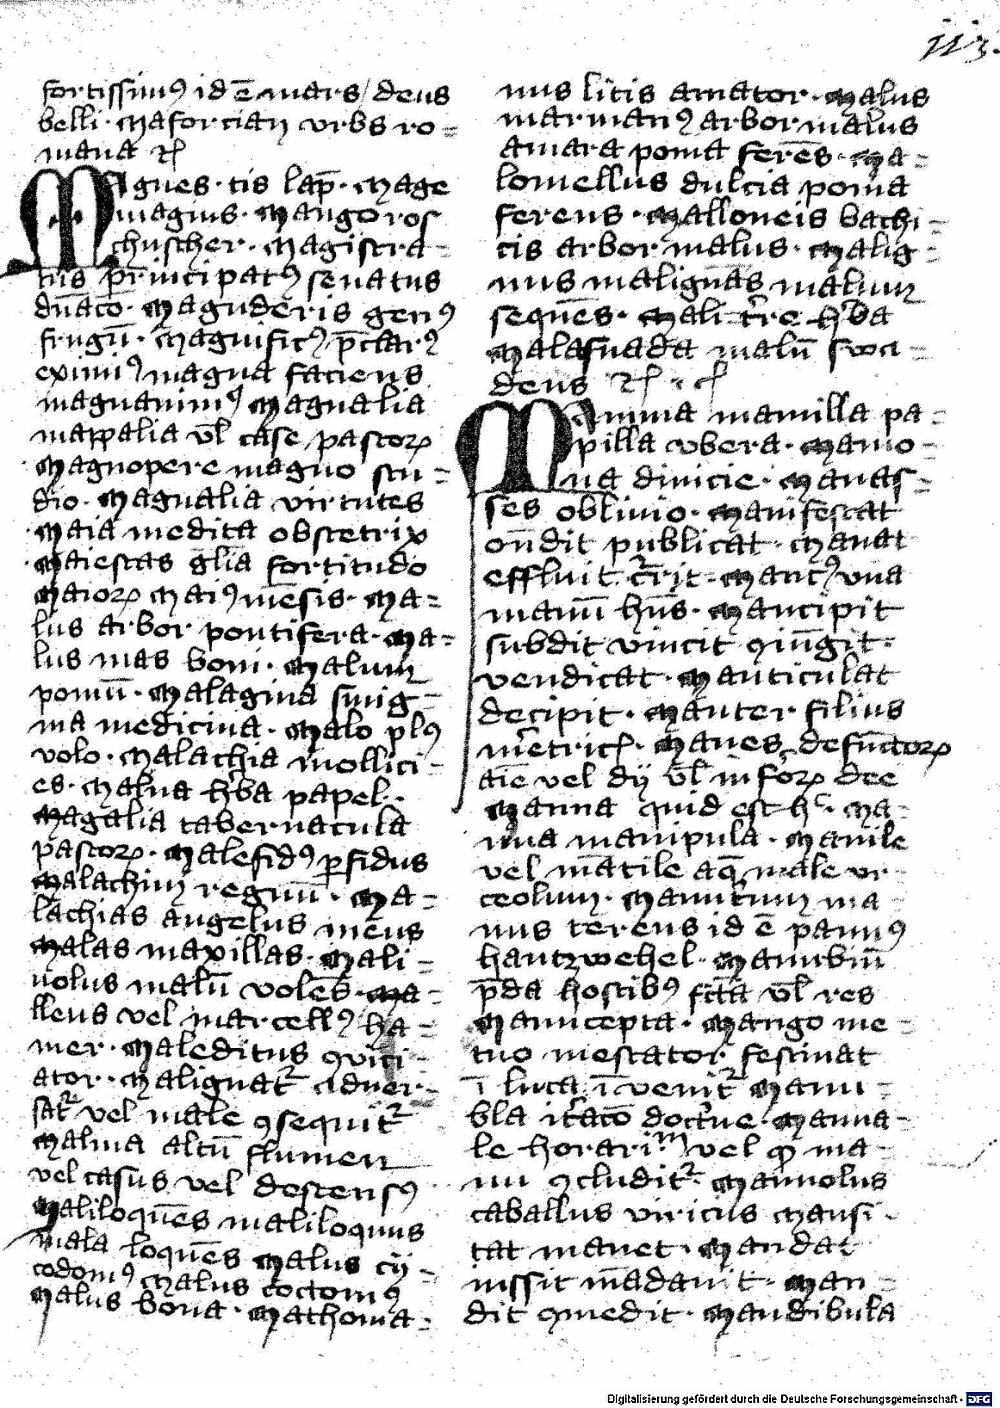 113.
fortissimꝰ id ē mars / deus
belli · Maforcian urbs ro=
mana ⁊c
Magnes · tis lap̄ · Mage
magius · Mango ros
thuscher · Magistra=
tus principatꝰ senatus
dn̄aco · Maguderis genꝰ
frugū · Magnificꝰ p̄clarꝰ
eximiꝰ magna faciens
magnanimꝰ Magnalia
mappalia vl̄ case / pastorꝝ
Magnopere magno stu=
dio · Magnalia virtutes
Maia medica obstetrix
Maiestas gl̄ia fortitudo
Maiorꝝ Maiꝰ mēsis · Ma=
lus arbor pontifera · Ma=
lus mas boni · Malum
pomū · Malagma
ma medicina · Malo plꝰ
volo · Malachia mollici=
es · Malua hʼba papel ·
Magalia tabernacula
pastorꝝ · Malefidꝰ ꝑfidus
Malachim regnū · Ma=
lachias angelus meus
Malas maxillas · Mali=
uolus malū volēs · Ma=
lleus vel marcellꝰ ha=
mer · Maleditus ꝯvici=
ator · Malignatᷣ aduer=
satᷣ vel male ꝯsequitᷣ
Malina altū flumen
vel casus vel descensꝰ
Maliloquēs maliloquus
mala loquēs Malus cy=
codomꝰ Malus coctomꝰ
Malus bona · Mathoma=
nus litis amator · Malus
marmanꝰ arbor malus
amara poma ferēs · Ma=
lomellus dulcia poma
ferens · Malloneis bachi=
tis arbor malus · Malig=
nus malignās malum
sequēs · Mali hʼba
Malasuada malū sua=
dens ⁊c
Mamma mamilla pa=
pilla vbera · Mamo=
na diuicie · Manas=
ses obliuio · Manifestat
on̄dit publicat · Manat
effluit · Mancꝰ vna
manū hn̄s · Mancipit
subdit vincit ꝯiūgit ·
vendicat · Manticulat
decipit · Manter filius
mʼetric̄ · Manes defunctorꝝ
aīe vel dij vl̄ infʼorꝝ dee
Manna quid est hͨ · Ma=
nua manipula · Manile
vel mātile aq̄ male vr=
ceolum · Manutʼium ma=
nus terens id ē pannꝰ
hantzwehel · Manubiū
p̄da hostibꝰ fc̄ta vl̄ res
Manucepta · Mango me=
tuo mescator festinat
ī luca ī venitᷣ Manu=
bla itʼato doctʼne · Manua=
le horariᵐ vel ꝙ ma=
nu ꝯcluditᷣ · Mannolus
caballus viricus Mansi=
tat manet · Mandat
iussit mādauit · Man=
dit ꝯmedit · Mandibula
Digitalisierung gefördert durch die Deutsche Forschungsgemeinschaft - DFG